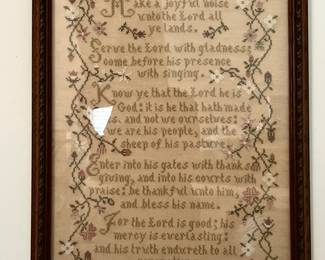 Make a joyful noise
unto the Lord all
ye lands.
Serve the Lord with gladness:
come before his presence
with singing.
Know ye that the Lord he is
God: it is he that hath made
us, and not we ourselves:
we are his people, and the
sheep of his pasture.
Enter into his gates with thanks
giving, and into his courts with
praise: be thankful unto him,
and bless his name.
For the Lord is good; his
mercy is everlasting:
and his truth endureth to all